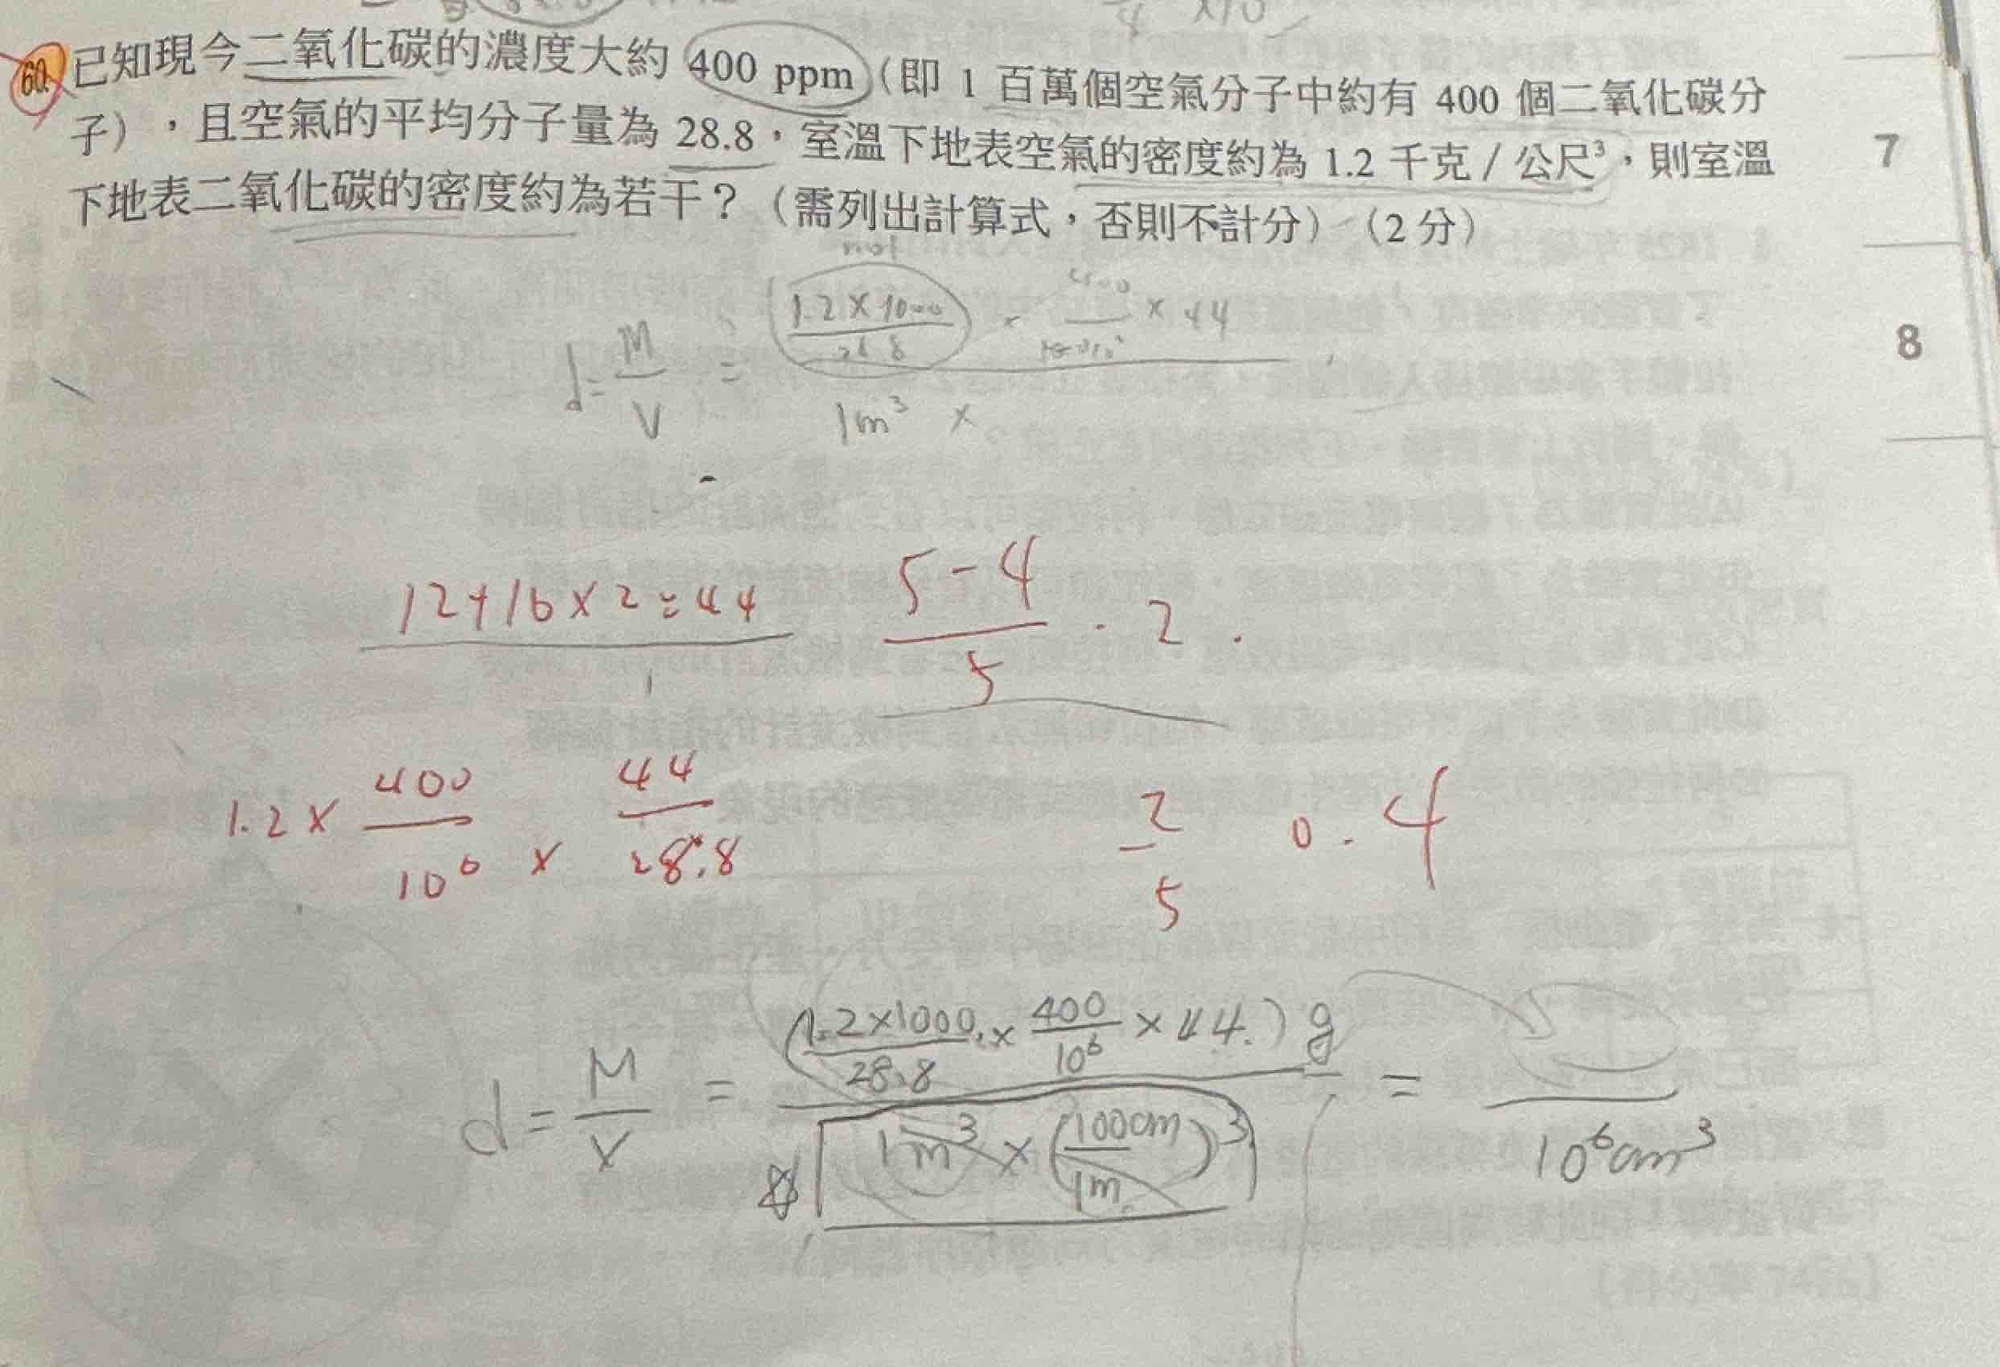 60. 已知現今二氧化碳的濃度大約 400 ppm（即 1 百萬個空氣分子中約有 400 個二氧化碳分
子），且空氣的平均分子量為 28.8，室溫下地表空氣的密度約為 1.2 千克 / 公尺³，則室溫
下地表二氧化碳的密度約為若干？（需列出計算式，否則不計分）（2 分）
7
8
mol
d = M/V = (1.2 × 1000)/28.8 × 400/ × 44
1m³ ×
12+16×2=44
5-4/5 · 2 ·
1.2 × 400/10⁶ × 44/28.8
2/5 0.4
d = M/V = (1.2×1000/28.8 × 400/10⁶ × 44.) g / 1m³ × (100cm/1m)³ = /10⁶cm³